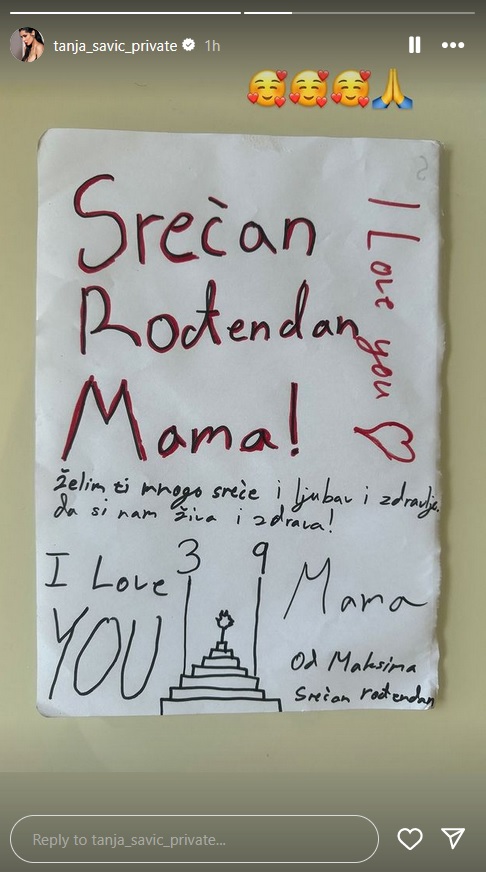 tanja_savic_private 1h
Srećan
Rođendan
Mama!
I Love you
želim ti mnogo sreće i ljubav i zdravlje.
da si nam živa i zdrava!
3 9
I Love
YOU
Mama
Od Maksima
Srećan rođendan
Reply to tanja_savic_private...